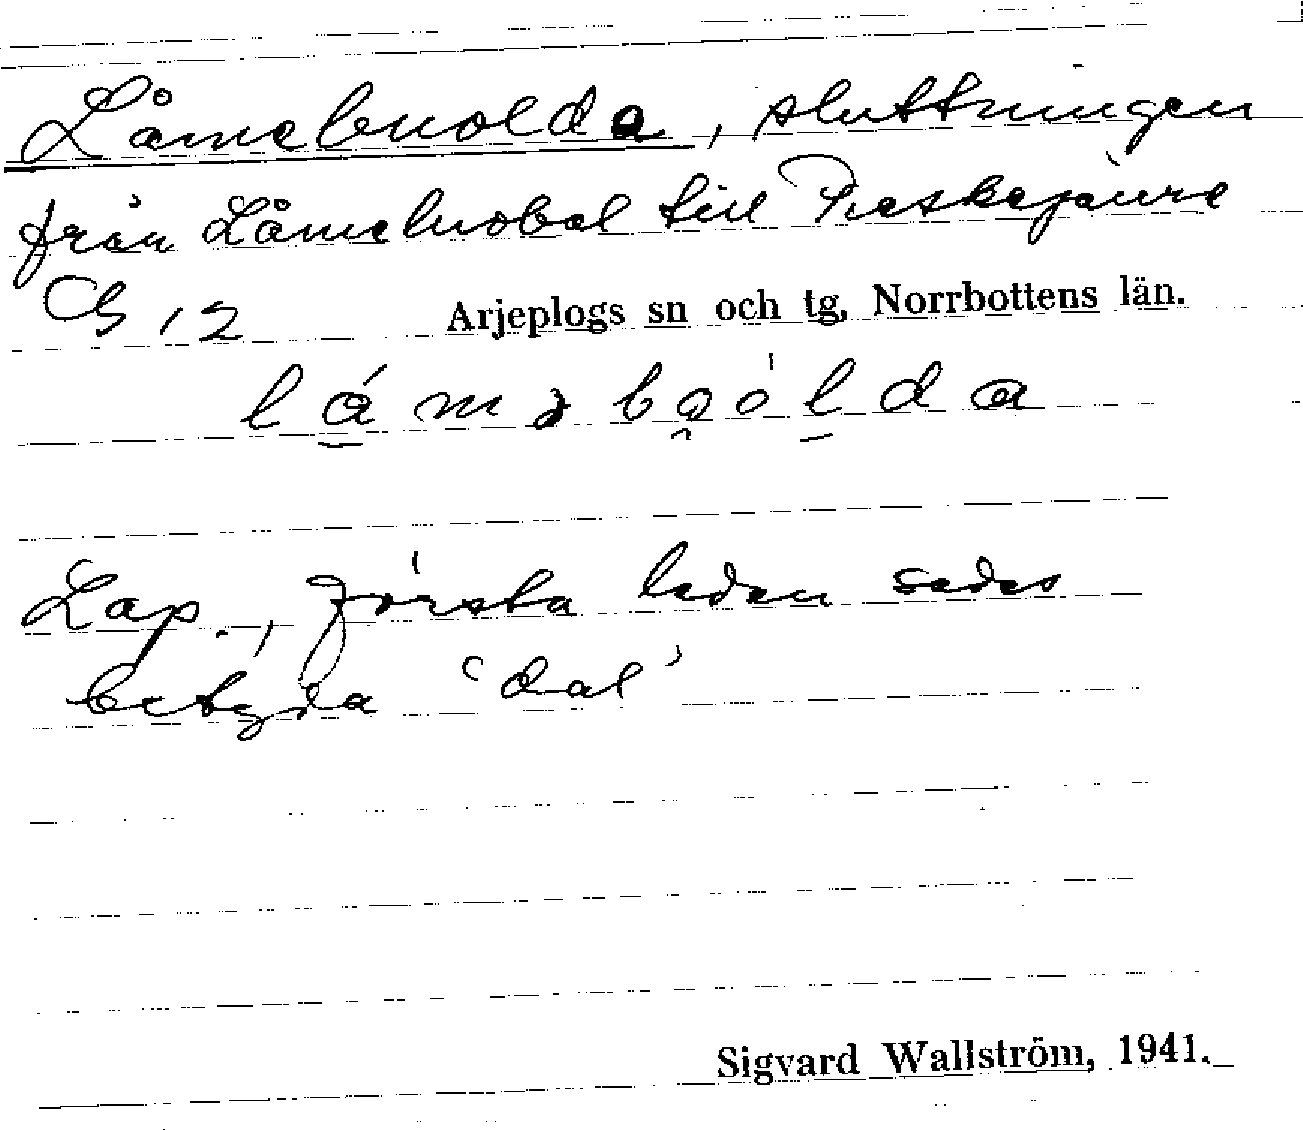 Låmebuolda, sluttningen
från Låmeluobal till Pieskejaure
G 12 Arjeplogs sn och tg, Norrbottens län.
láməbu̯ólda
Lap., första leden sades
betyda 'dal'
Sigvard Wallström, 1941.